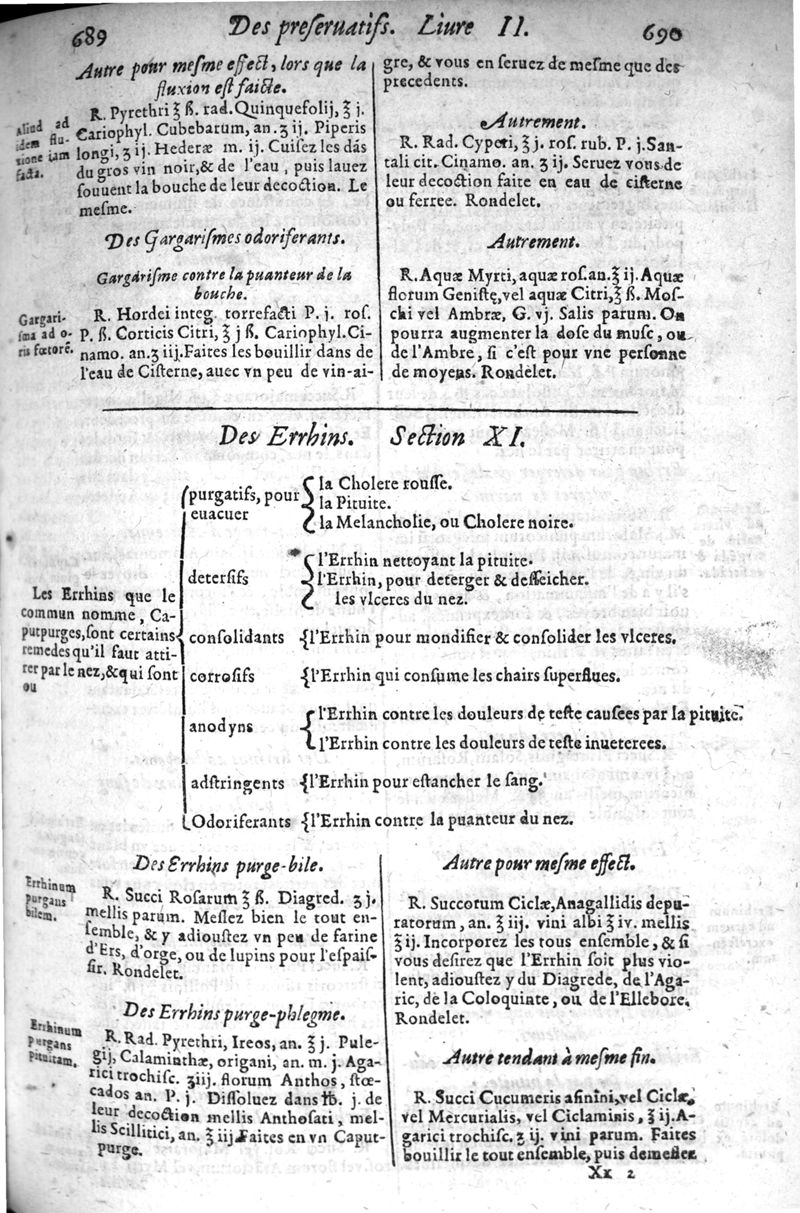 689
Des preſeruatifs. Liure II.
690
Autre pour meſme effect, lors que la
fluxion eſt faicte.
Aliud ad
idem flu-
xione iam
facta.
R. Pyrethri ʒ̃ ß. rad. Quinquefolij, ʒ̃ j.
Cariophyl. Cubebarum, an. ʒ ij. Piperis
longi, ʒ ij. Hederæ m. ij. Cuiſez les dãs
du gros vin noir, & de l'eau, puis lauez
ſouuent la bouche de leur decoction. Le
meſme.
Des Gargariſmes odoriferants.
Gargariſme contre la puanteur de la
bouche.
Gargari-
ſma ad o-
ris fœtorẽ.
R. Hordei integ. torrefacti P. j. roſ.
P. ß. Corticis Citri, ʒ̃ j ß. Cariophyl. Ci-
namo. an. ʒ iij. Faites les bouillir dans de
l'eau de Ciſterne, auec vn peu de vin-ai-
gre, & vous en ſeruez de meſme que des
precedents.
Autrement.
R. Rad. Cyperi, ʒ̃ j. roſ. rub. P. j. San-
tali cit. Cinamo. an. ʒ ij. Seruez vous de
leur decoction faite en eau de ciſterne
ou ferree. Rondelet.
Autrement.
R. Aquæ Myrti, aquæ roſ. an. ʒ̃ ij. Aquæ
florum Geniſtę, vel aquæ Citri, ʒ̃ ß. Moſ-
chi vel Ambræ, G. vj. Salis parum. On
pourra augmenter la doſe du muſc, ou
de l'Ambre, ſi c'eſt pour vne perſonne
de moyens. Rondelet.
Des Errhins. Section XI.
Les Errhins que le
commun nomme, Ca-
putpurges, ſont certains
remedes qu'il faut atti-
rer par le nez, & qui ſont
ou
purgatifs, pour
euacuer
la Cholere rouſſe.
la Pituite.
la Melancholie, ou Cholere noire.
deterſifs
l'Errhin nettoyant la pituite.
l'Errhin, pour deterger & deſſeicher.
les vlceres du nez.
conſolidants
l'Errhin pour mondifier & conſolider les vlceres.
corroſifs
l'Errhin qui conſume les chairs ſuperflues.
anodyns
l'Errhin contre les douleurs de teſte cauſees par la pituite.
l'Errhin contre les douleurs de teſte inueterees.
adſtringents
l'Errhin pour eſtancher le ſang.
Odoriferants
l'Errhin contre la puanteur du nez.
Des Errhins purge-bile.
Errhinum
purgans
bilem.
R. Succi Roſarum ʒ̃ ß. Diagred. ʒ j.
mellis parum. Meſlez bien le tout en-
ſemble, & y adiouſtez vn peu de farine
d'Ers, d'orge, ou de lupins pour l'eſpaiſ-
ſir. Rondelet.
Des Errhins purge-phlegme.
Errhinum
purgans
pituitam.
R. Rad. Pyrethri, Ireos, an. ʒ̃ j. Pule-
gij, Calaminthæ, origani, an. m. j. Aga-
rici trochiſc. ʒiij. florum Anthos, ſtœ-
cados an. P. j. Diſſoluez dans ℔. j. de
leur decoction mellis Anthoſati, mel-
lis Scillitici, an. ʒ̃ iij. Faites en vn Caput-
purge.
Autre pour meſme effect.
R. Succorum Ciclæ, Anagallidis depu-
ratorum, an. ʒ̃ iij. vini albi ʒ̃ iv. mellis
ʒ̃ ij. Incorporez les tous enſemble, & ſi
vous deſirez que l'Errhin ſoit plus vio-
lent, adiouſtez y du Diagrede, de l'Aga-
ric, de la Coloquinte, ou de l'Ellebore.
Rondelet.
Autre tendant à meſme fin.
R. Succi Cucumeris aſinini, vel Ciclæ,
vel Mercurialis, vel Ciclaminis, ʒ̃ ij. A-
garici trochiſc. ʒ ij. vini parum. Faites
bouillir le tout enſemble, puis demeſlez
Xx 2